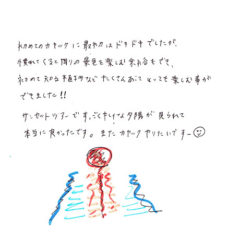 初めてのカヤックに最初はドキドキでしたが、
慣れてくると周りの景色を楽しむ余裕もでき、
初めて見る植物などたくさんあって とっても楽しむ事が
できました!!
サンセットツアーです。ごくキレイな夕陽が見られて
本当に良かったです。またカヤックやりたいですー